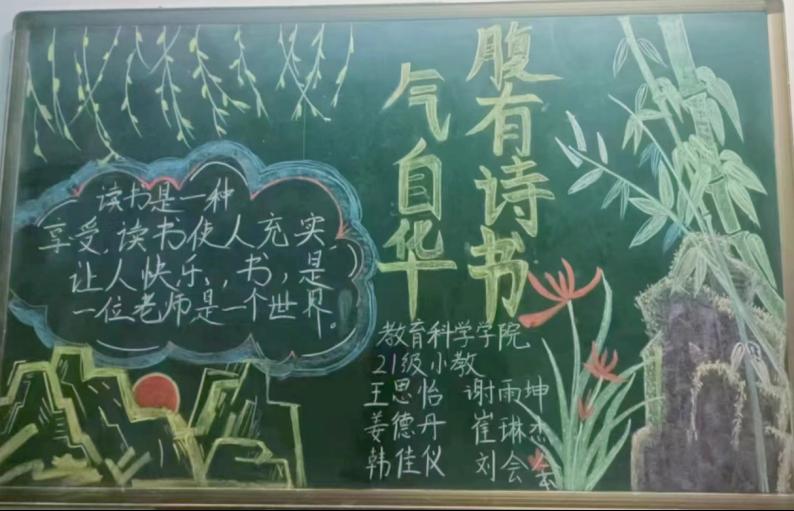 腹有诗书
气自华
读书是一种
享受,读书使人充实,
让人快乐,书,是
一位老师是一个世界。
教育科学学院
21级小教
王思怡 谢雨坤
姜德丹 崔琳杰
韩佳仪 刘会会